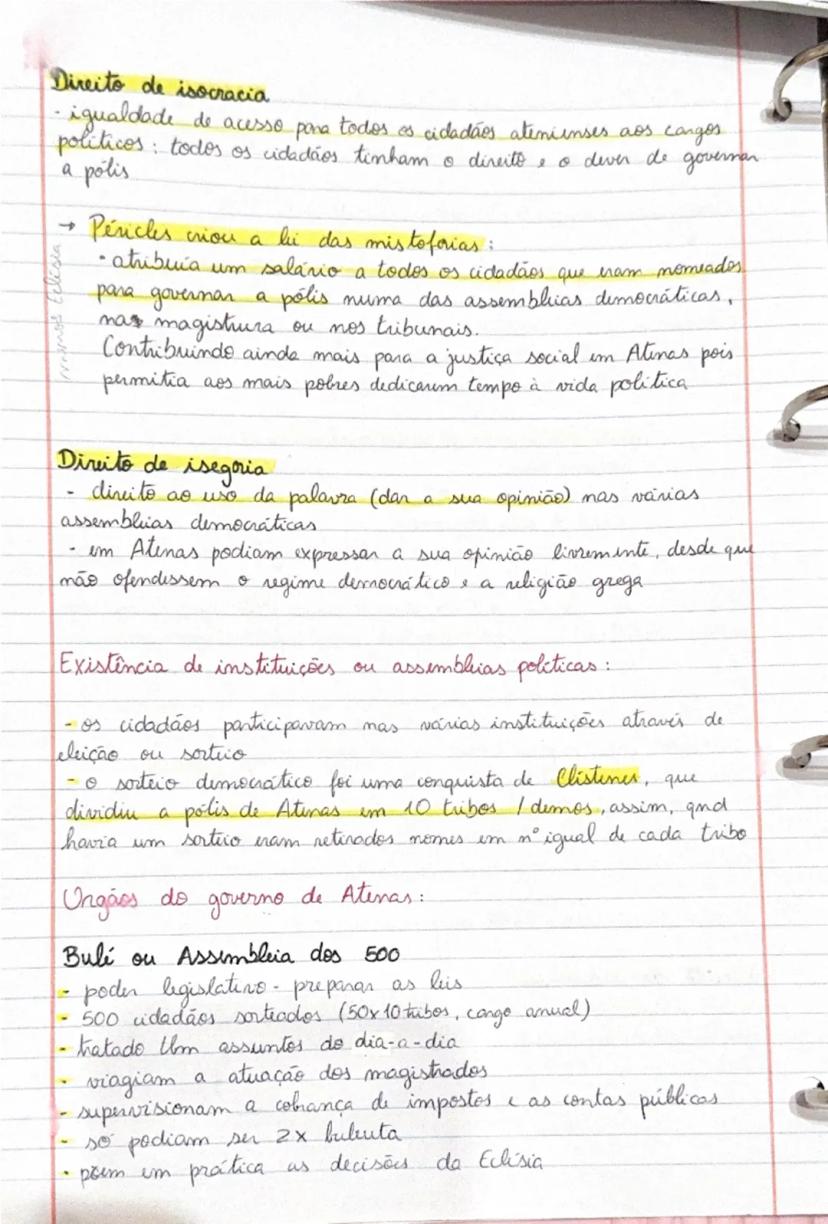 Direito de isocracia
- igualdade de acesso para todos os cidadãos atenienses aos cargos
políticos: todos os cidadãos tinham o direito e o dever de governar
a pólis
→ Péricles criou a lei das mistoforias:
• atribuia um salário a todos os cidadãos que eram nomeados
para governar a pólis numa das assembleias democráticas,
nas magistrura ou nos tribunais.
Contribuindo ainda mais para a justiça social em Atenas pois
permitia aos mais pobres dedicarem tempo à vida política
Eclésia
Direito de isegoria
- direito ao uso da palavra (dar a sua opinião) nas várias
assembleias democráticas
- em Atenas podiam expressar a sua opinião livremente, desde que
não ofendessem o regime democrático e a religião grega
Existência de instituições ou assembleias políticas:
- os cidadãos participavam nas várias instituições através de
eleição ou sorteio
- o sorteio democrático foi uma conquista de Clístenes, que
dividiu a pólis de Atenas em 10 tribos / demos, assim, qnd
havia um sorteio eram retirados nomes em nº igual de cada tribo
Orgãos do governo de Atenas:
Bulé ou Assembleia dos 500
- poder legislativo - preparar as leis
- 500 cidadãos sorteados (50x10 tribos, cargo anual)
- tratado assuntos do dia-a-dia
- viagiam a atuação dos magistrados
- supervisionam a cobrança de impostos e as contas públicas
- só podiam ser 2x buleuta
• põem em prática as decisões da Eclésia